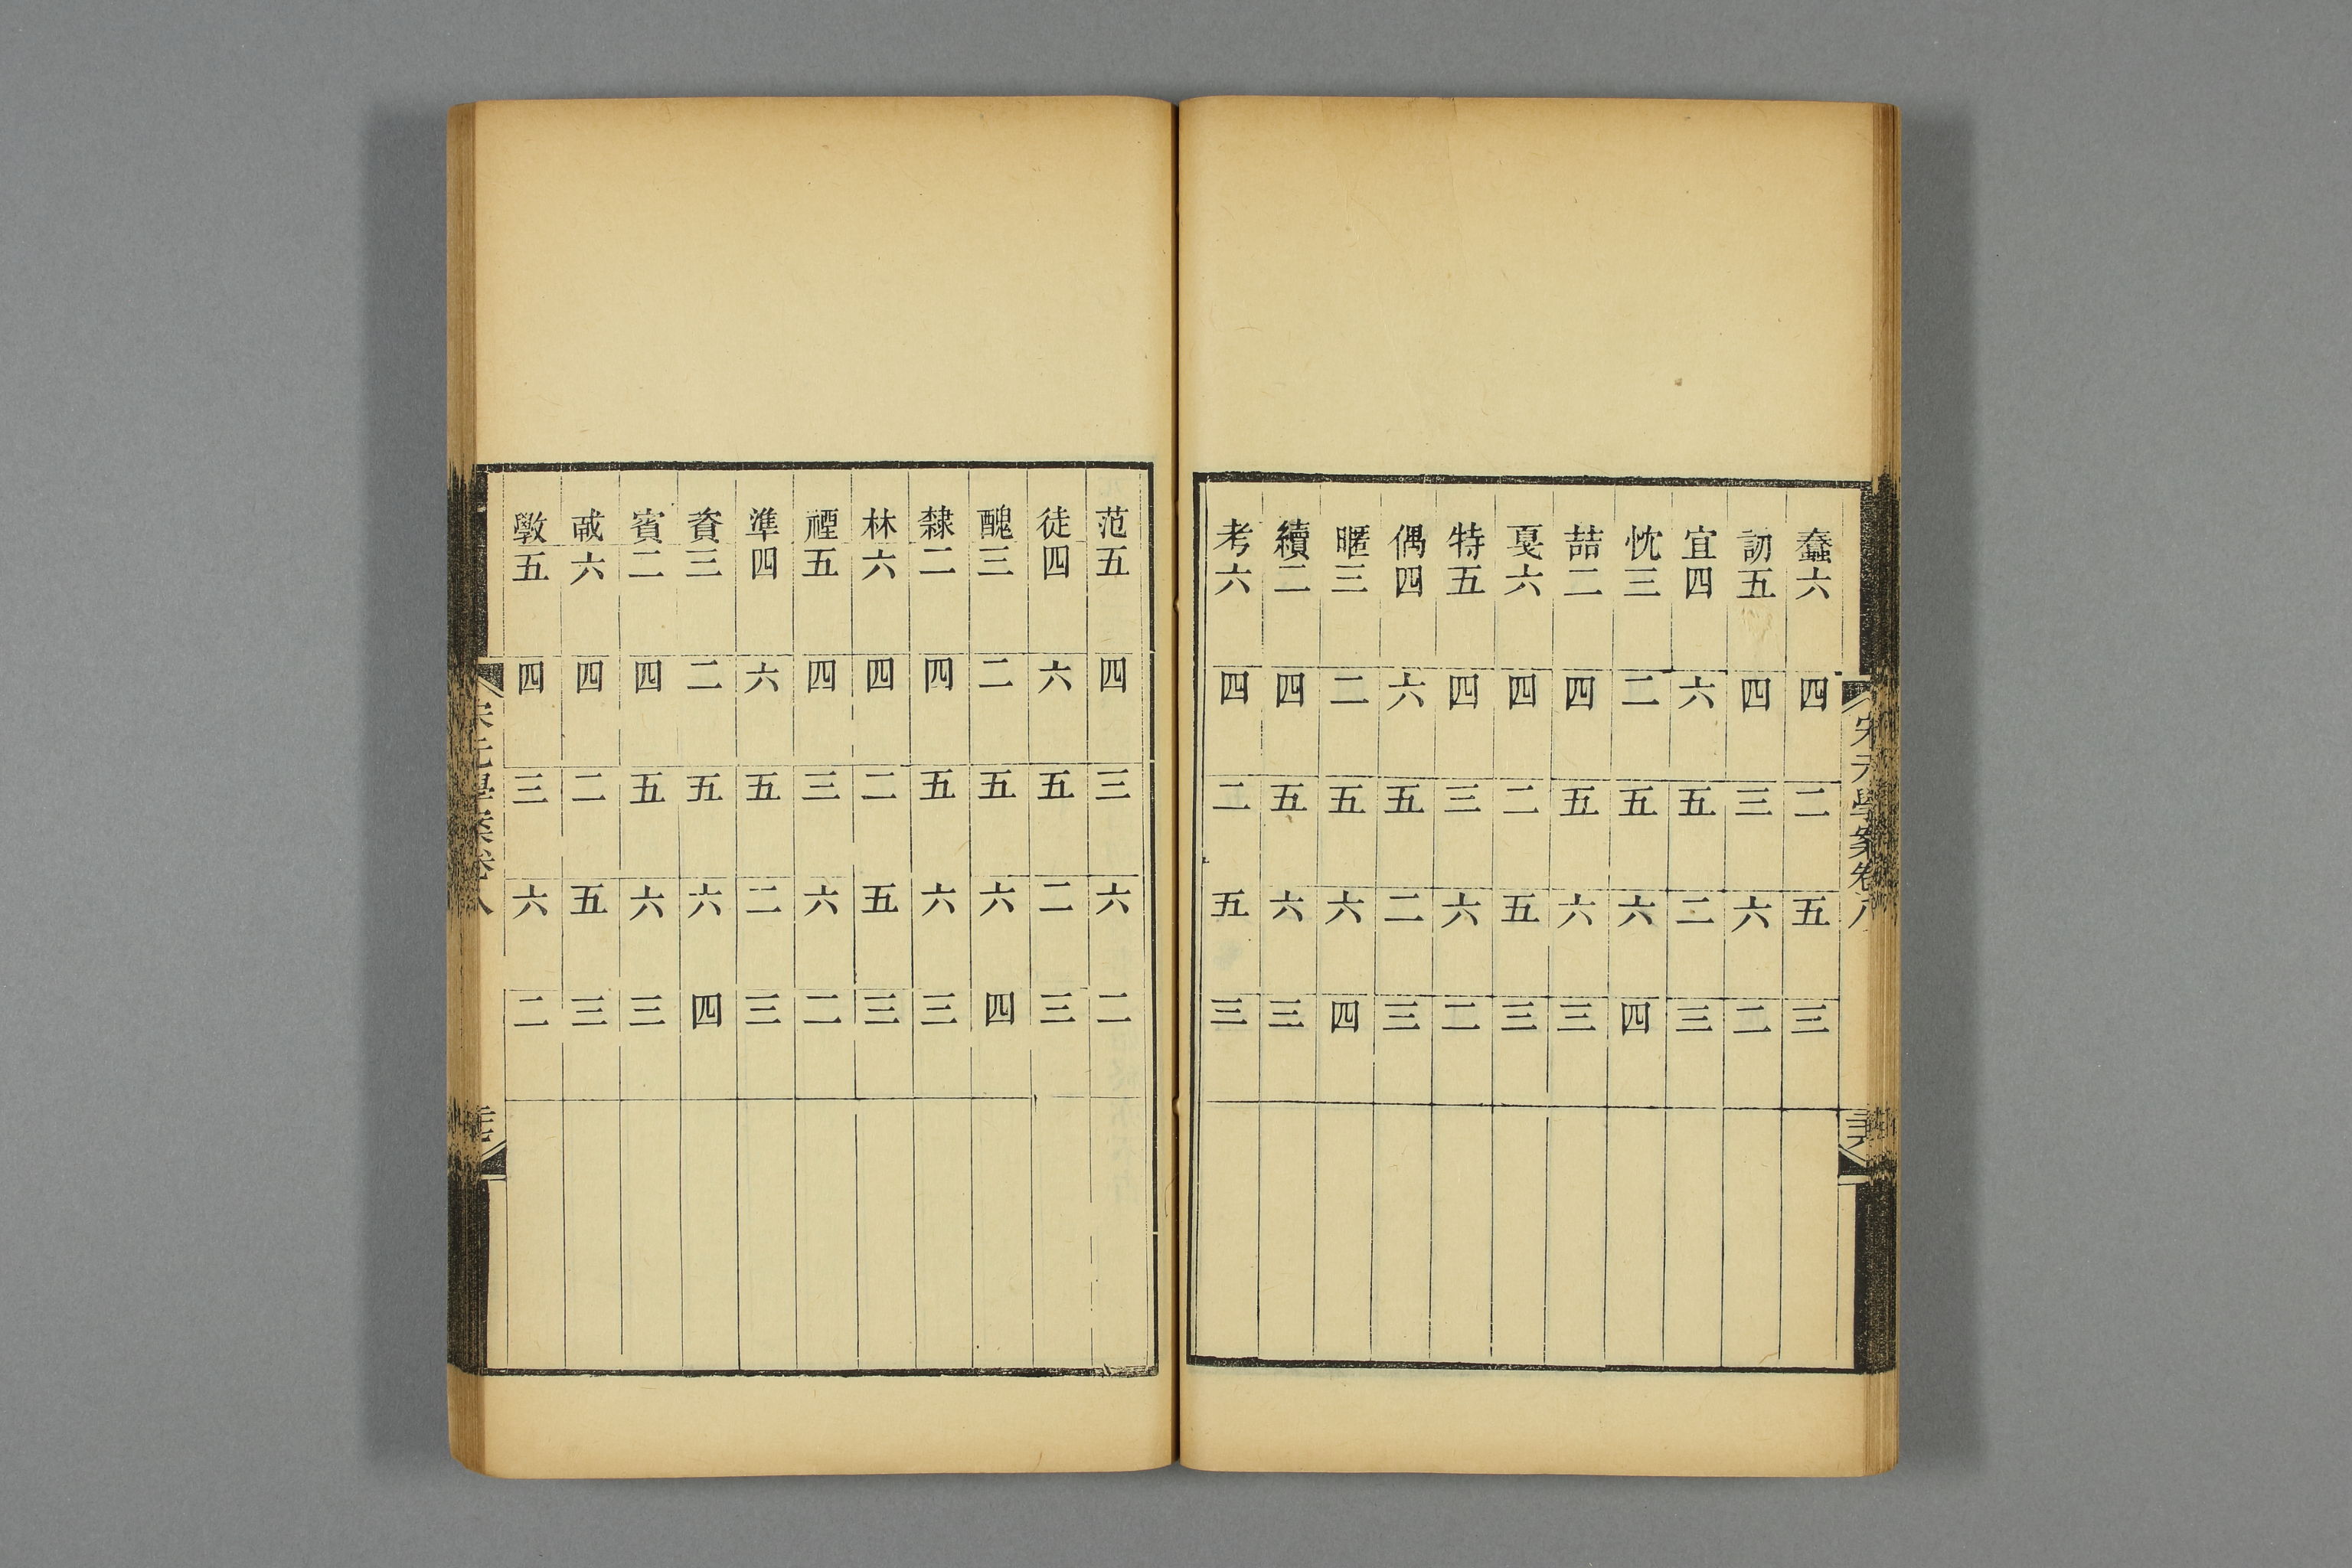 蠢六 四 二 五 三
訒五 四 三 六 二
宜四 六 五 二 三
忱三 二 五 六 四
喆二 四 五 六 三
戛六 四 二 五 三
特五 四 三 六 二
偶四 六 五 二 三
暱三 二 五 六 四
續二 四 五 六 三
考六 四 二 五 三
范五 四 三 六 二
徒四 六 五 二 三
醜三 二 五 六 四
隸二 四 五 六 三
林六 四 二 五 三
禋五 四 三 六 二
準四 六 五 二 三
資三 二 五 六 四
賓二 四 五 六 三
戫六 四 二 五 三
斆五 四 三 六 二
宋元學案卷八
宋元學案卷八